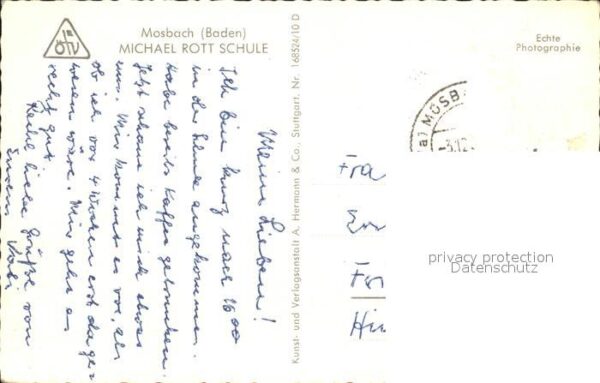 ÖTV
Mosbach (Baden)
MICHAEL ROTT SCHULE
Echte
Photographie
a) MOSB
-3.12.
Kunst- und Verlagsanstalt A. Hermann & Co., Stuttgart Nr. 168526/10 D
Meine Lieben!
Ich bin kurz nach 16 00
in der Schule angekommen.
Habe bereits Kaffee getrunken.
Jetzt schaue ich mich etwas
um. Mir kommt es vor, als
ob ich vor 4 Wochen erst da ge-
wesen wäre. Mir geht es
recht gut.
Recht liebe Grüße von
Eurem
Fra
Hin
privacy protection
Datenschutz